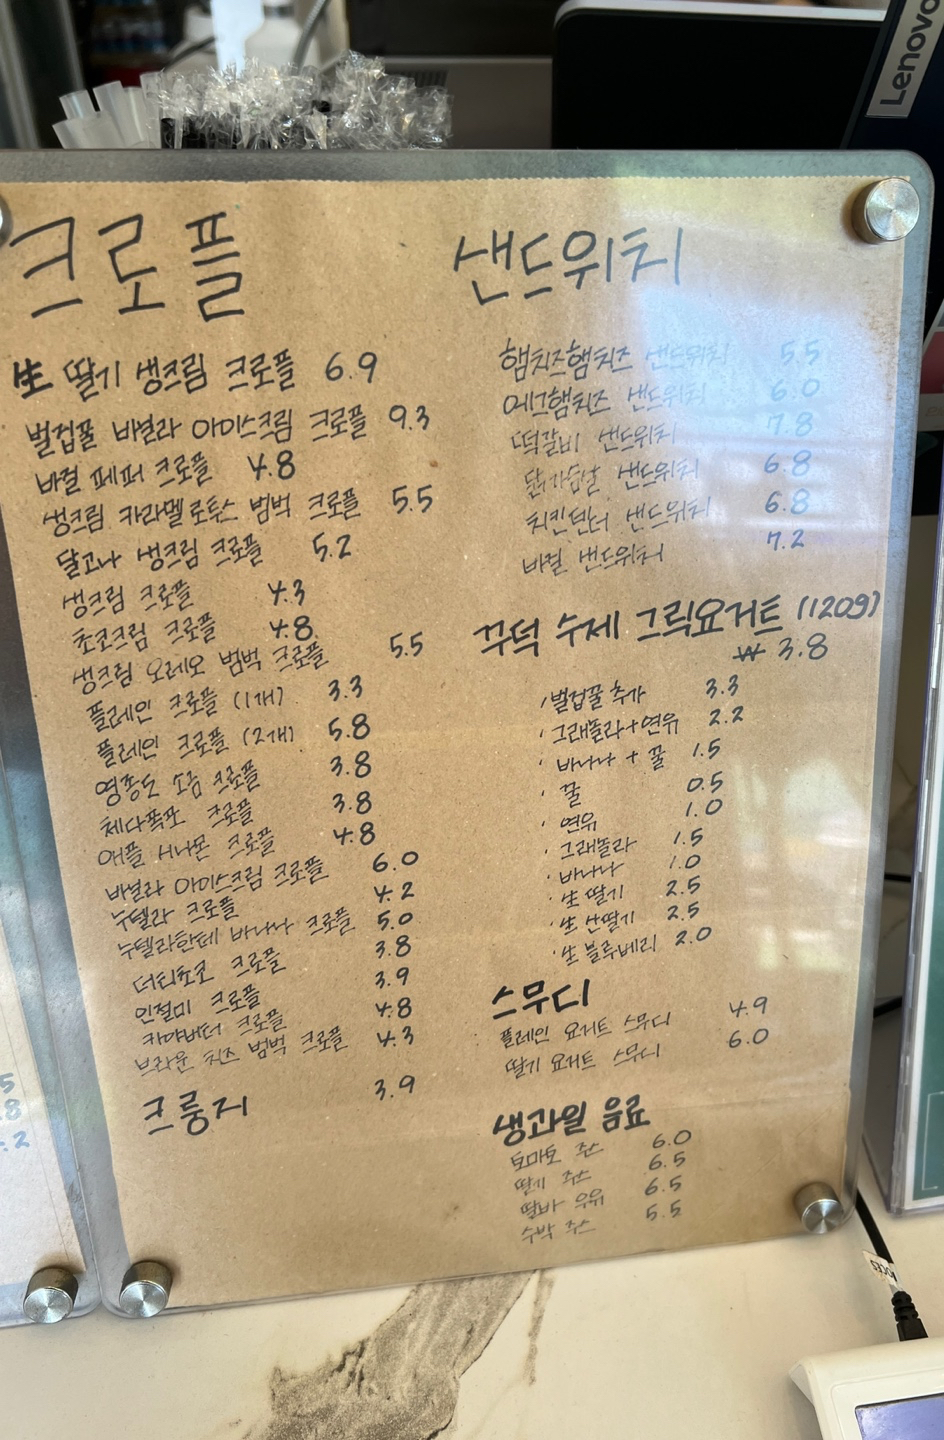 크로플
生 딸기 생크림 크로플 6.9
벌집꿀 바닐라 아이스크림 크로플 9.3
바질 페퍼 크로플 4.8
생크림 카라멜로투스 범벅 크로플 5.5
달고나 생크림 크로플 5.2
생크림 크로플 4.3
초코크림 크로플 4.8
생크림 오레오 범벅 크로플 5.5
플레인 크로플 (1개) 3.3
플레인 크로플 (2개) 5.8
영종도 소금 크로플 3.8
체다폭포 크로플 3.8
애플 시나몬 크로플 4.8
바닐라 아이스크림 크로플 6.0
누텔라 크로플 4.2
누텔라한테 바나나 크로플 5.0
더티초코 크로플 3.8
인절미 크로플 3.9
카야버터 크로플 4.8
브라운 치즈 범벅 크로플 4.3
크룽지 3.9
샌드위치
햄치즈햄치즈 샌드위치 5.5
에그햄치즈 샌드위치 6.0
떡갈비 샌드위치 7.8
닭가슴살 샌드위치 6.8
치킨텐더 샌드위치 6.8
바질 샌드위치 7.2
꾸덕 수제 그릭요거트 (120g)
₩ 3.8
· 벌집꿀 추가 3.3
· 그래놀라+연유 2.2
· 바나나 + 꿀 1.5
· 꿀 0.5
· 연유 1.0
· 그래놀라 1.5
· 바나나 1.0
· 生 딸기 2.5
· 生 산딸기 2.5
· 生 블루베리 2.0
스무디
플레인 요거트 스무디 4.9
딸기 요거트 스무디 6.0
생과일 음료
토마토 주스 6.0
딸기 주스 6.5
딸바 우유 6.5
수박 주스 5.5
Lenovo
5
.8
.2